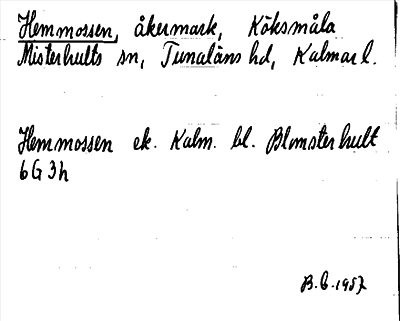 Hemmossen, åkermark, Köksmåla
Misterhults sn, Tunaläns hd, Kalmar l.
Hemmossen ek. Kalm. bl. Blomsterhult
6G3h
B.G. 1957